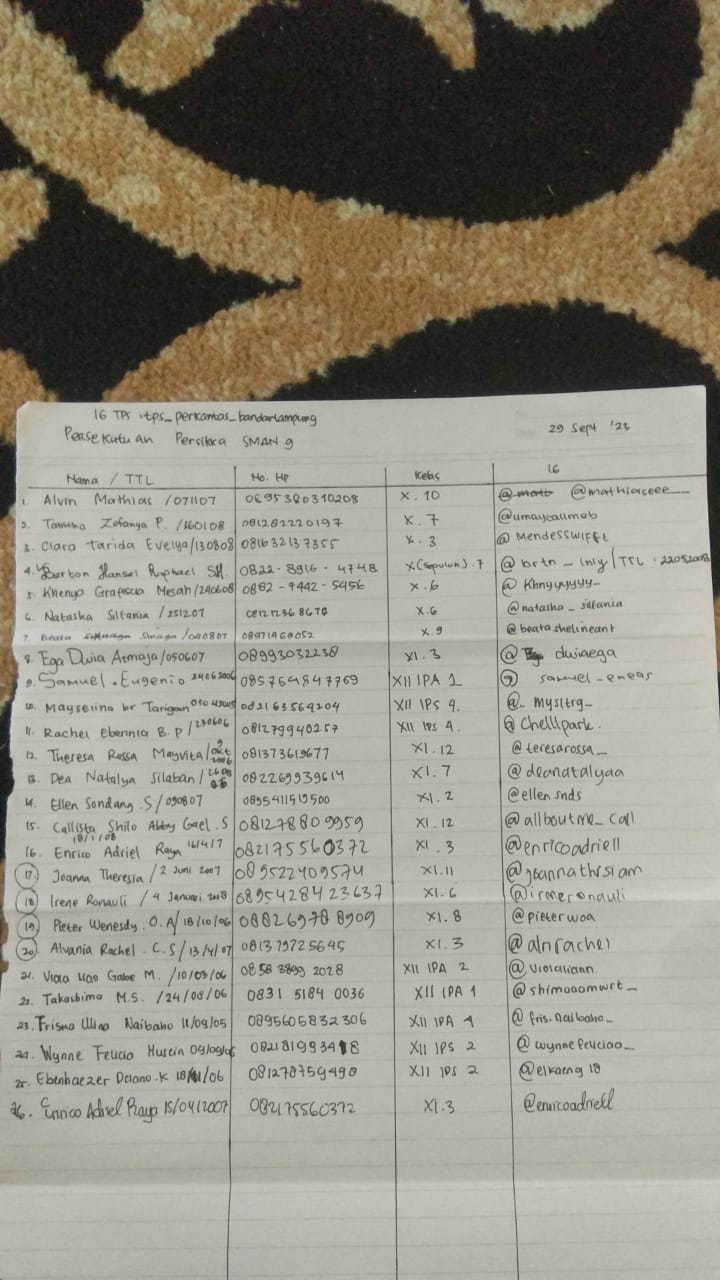 16 TPS : tps_perkantas_bandarlampung
29 Sept '23
Persekutuan Persikra SMAN 9
Nama / TTL No. Hp Kelas 16
1. Alvin Mathias / 071107 0895380310208 X. 10 @mathiaseee__
2. Zofanya P. / 160108 081282220197 X. 7 @umaycaumob
3. Clara Tarida Evelya/130808 081632137355 X. 3 @ Mendesswifft
4. Raphael SH. 0822-8916-4748 X(sepuluh).7 @ brtn_lnly/TTL : 22052008
5. Khenya Mesah/240608 0882-7442-5456 X.6 @ Khnyyyyyy_
6. Natasha Siltania / 251207 X.6 @natasha_silfania
7. Beata Sinaga /040807 08971468052 X.9 @beatashelineant
8. Ega Dwia Atmaja/050607 08993032238 XI. 3 @ dwiaega
9. Samuel. Eugenio 24062006 085764847769 XII IPA 1 @ samuel_eneas
10. Mayselino br Tarigan 082163564204 XII IPS 4. @_ mysltrg_
11. Rachel Eberinia B. P /230606 081279940257 XII IPS 4. @ Chellpark.
12. Theresa Rossa Mayvita/9 Okt 2006 081373619677 XI. 12 @teresarossa_
13. Dea Natalya Silaban / 082269939614 XI. 7 @ deanatalyaa
14. Ellen Sondang .S /090807 0895411519500 XI. 2 @ellen snds
15. Callista Shilo Abby Gael .S 081278809959 XI. 12 @allboutme_call
18/1/08
16. Enrico Adriel Raya 16/4/7 082175560372 XI. 3 @enricoadriell
17. Joanna Theresia / 2 Juni 2007 089522409574 XI.11 @joannathrsiam
18. Irene Ronauli / 4 Januari 2008 0895428423637 XI. 6 @ireneronauli
19. Pieter Wenesdy. O. A/18/10/06 088269788909 XI. 8 @pieterwoa
20. Alvania Rachel . C.S /13/4/07 081379725645 XI. 3 @alnrachel
21. Viola Gabe M. /10/03/06 0858 3899 2028 XII IPA 2 @violaliann
22. Takashima M.S. /24/08/06 0831 5184 0036 XII IPA 1 @shimaaomwrt_
23. Frisna Ulina Naibaho 11/09/05 0895605832306 XII IPA 4 @ fris.naibaho_
24. Wynne Felicia Husein 09/09/06 XII IPS 2 @wynnefeliciaa_
25. Ebenhaezer Delano. K 081278759498 XII IPS 2 @elkaeng 18
26. Enrico Adriel Raya 15/04/2007 082175560372 XI. 3 @enricoadriell